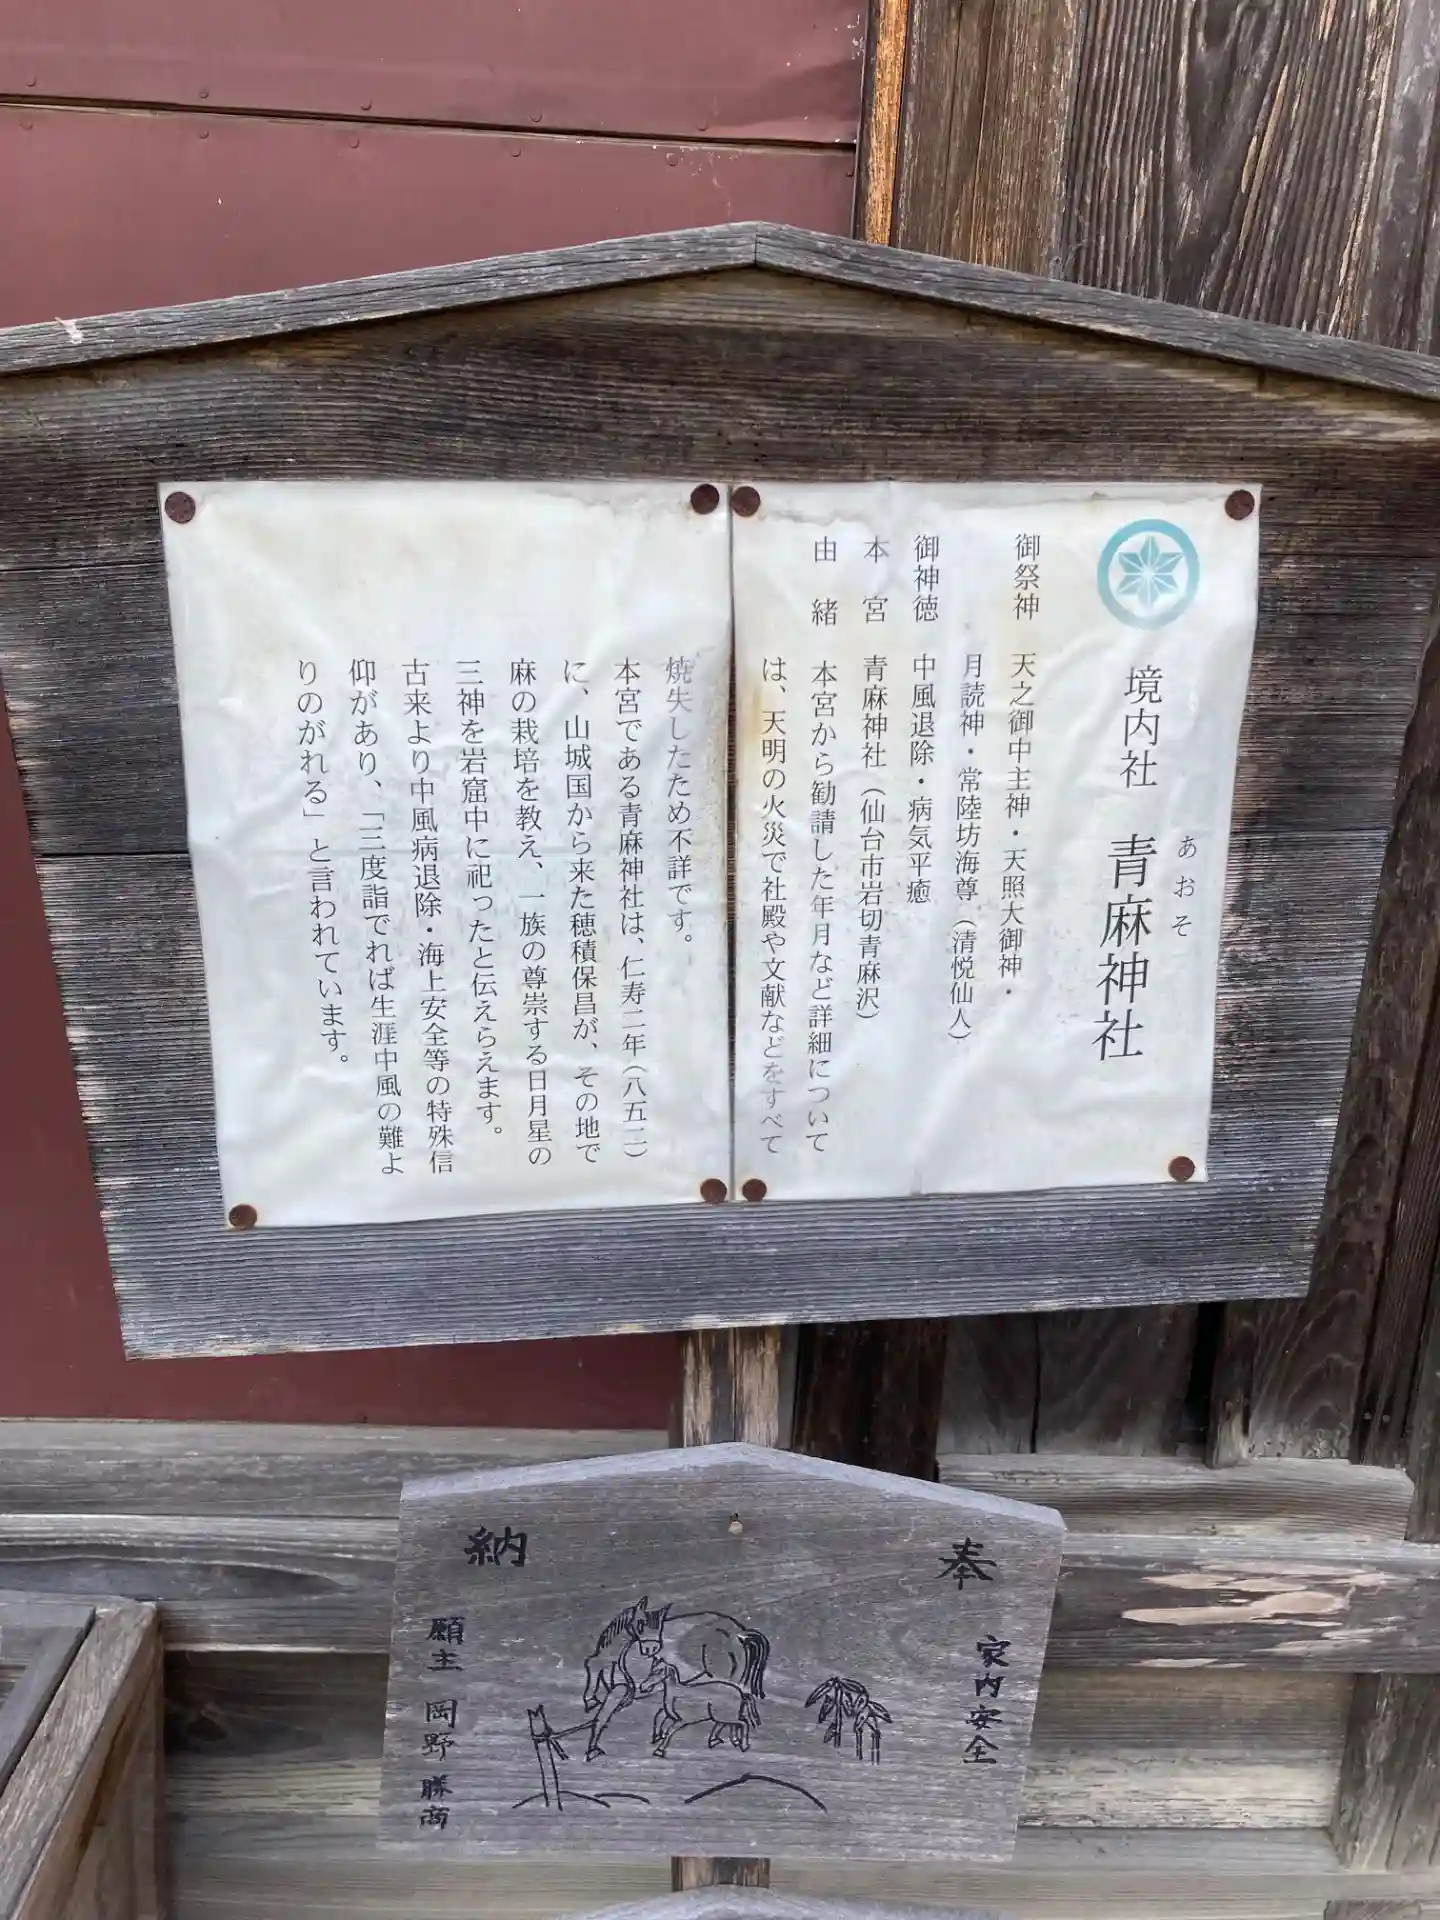 境内社 青麻神社
あおそ
御祭神 天之御中主神・天照大御神・
月読神・常陸坊海尊（清悦仙人）
御神徳 中風退除・病気平癒
本宮 青麻神社（仙台市岩切青麻沢）
由緒 本宮から勧請した年月など詳細について
は、天明の火災で社殿や文献などをすべて
焼失したため不詳です。
本宮である青麻神社は、仁寿二年（八五二）
に、山城国から来た穂積保昌が、その地で
麻の栽培を教え、一族の尊崇する日月星の
三神を岩窟中に祀ったと伝えらえます。
古来より中風病退除・海上安全等の特殊信
仰があり、「三度詣でれば生涯中風の難よ
りのがれる」と言われています。
奉納
家内安全
願主 岡野勝商